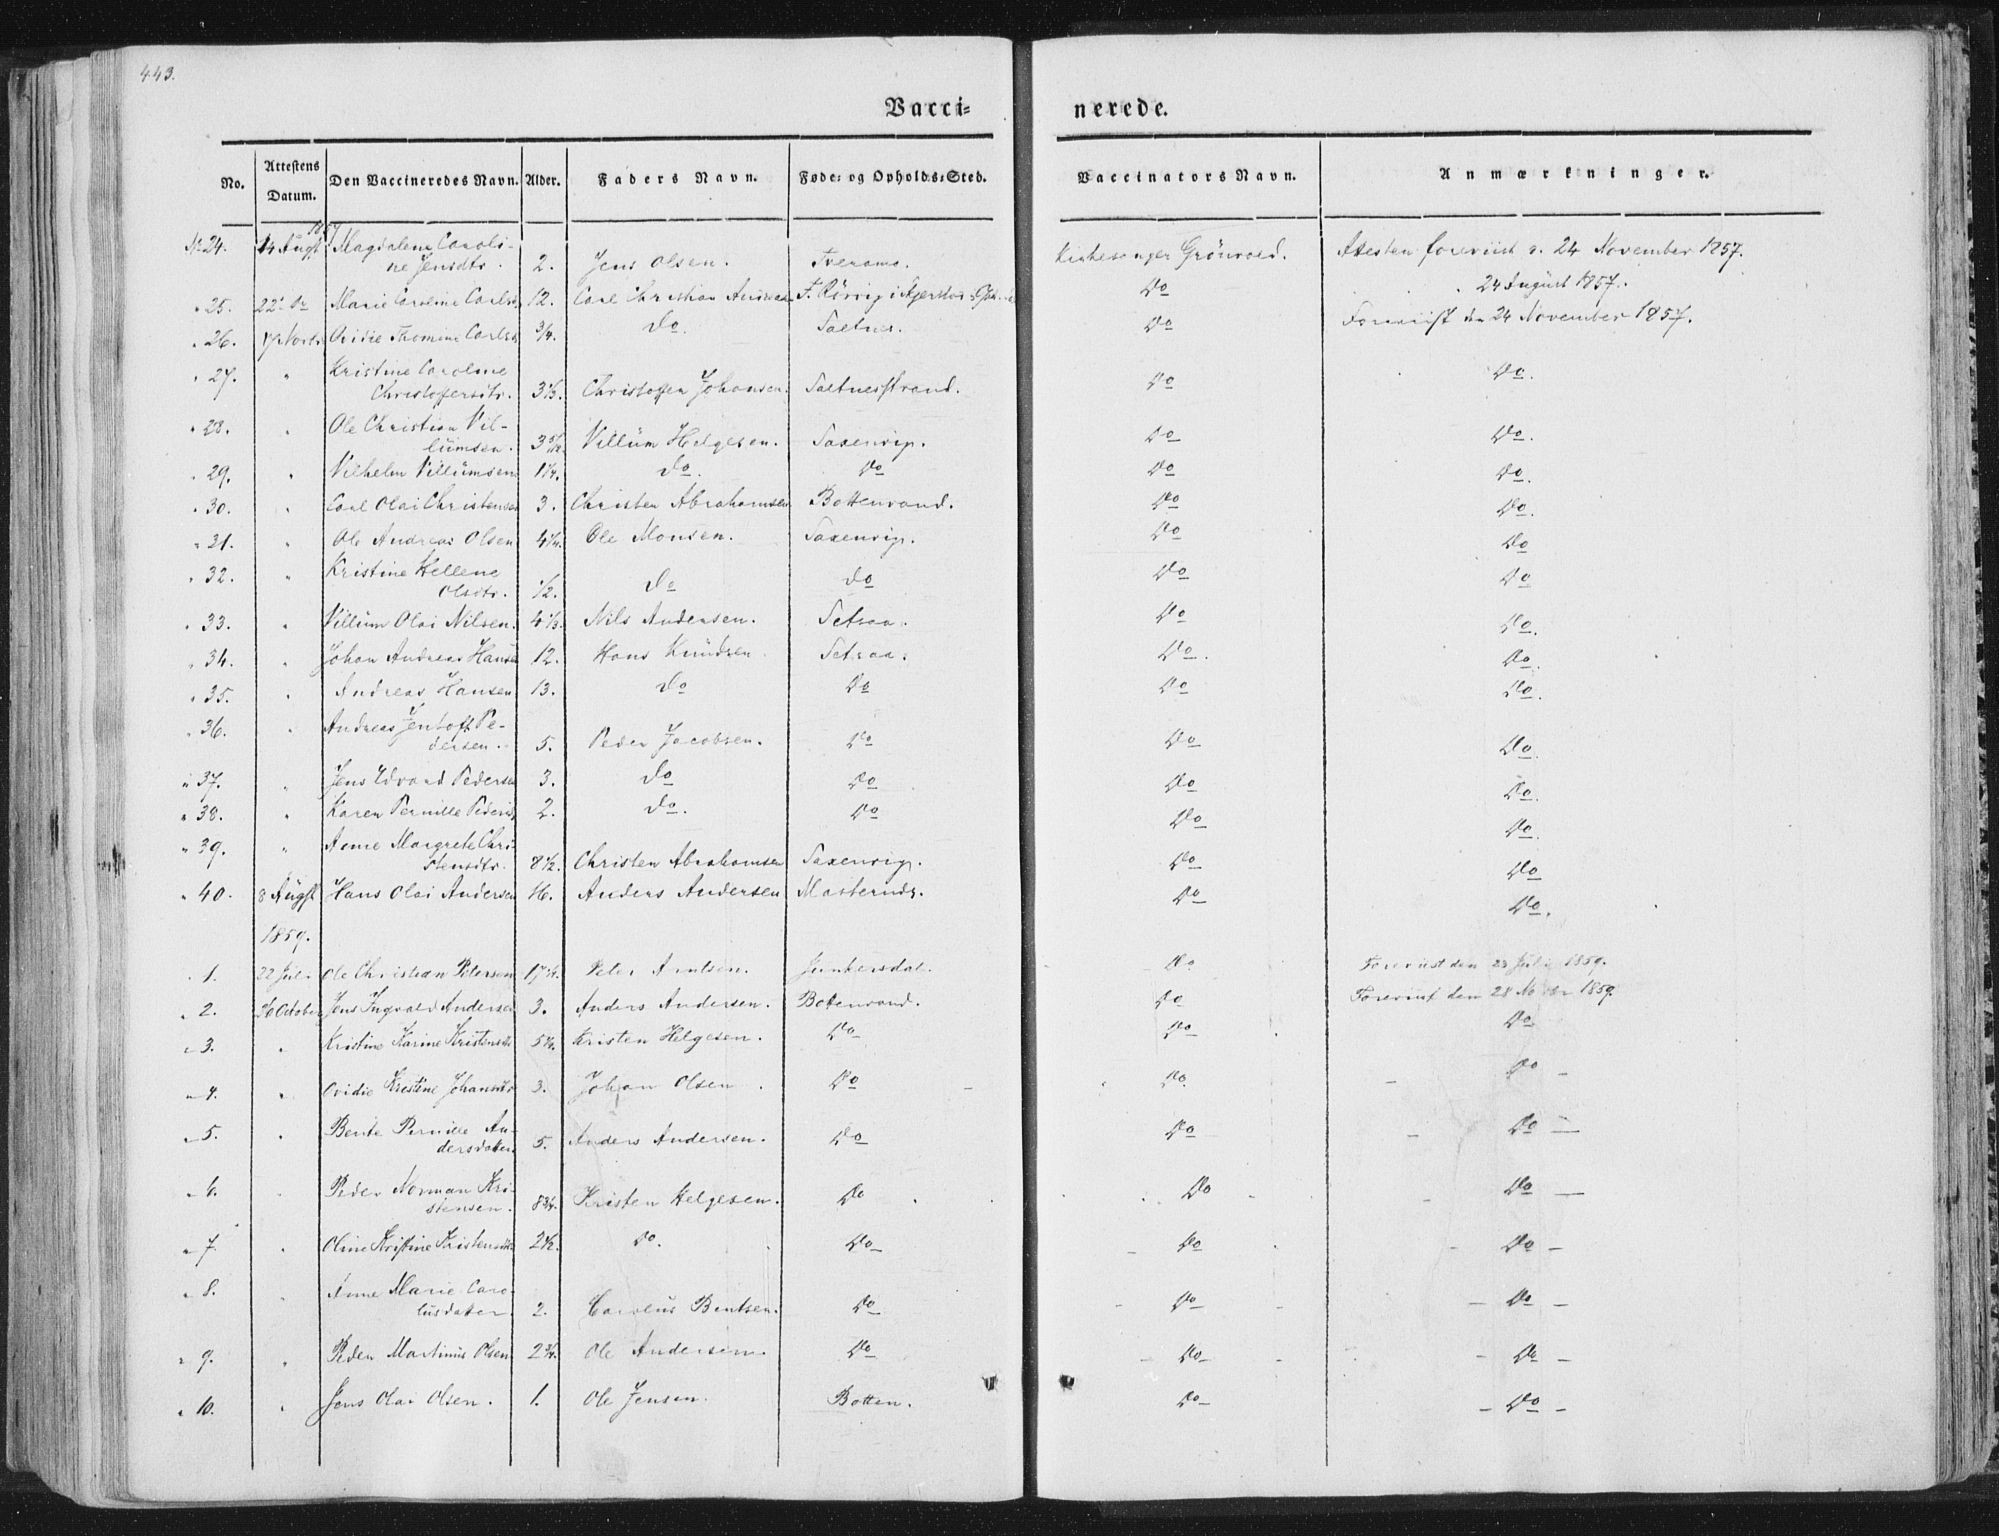 443.
Vacci=
nerede.
No. Attestens Datum. Den Vaccineredes Navn. Alder. Faders Navn. Føde= og Opholds=Sted. Vaccinators Navn. Anmærkninger.
1857
No 24. 14 Augst Magdalene Caroli-
ne Jensdtr. 2. Jens Olsen. Tveraamo. Kirkesanger Grönvold. Attesten foreviist d. 24 November 1857.
" 25. 22 Do Marie Caroline Carlsd 12. Carl Christian Andreas Do " 24 August 1857.
" 26. 17 Novbr Ovidie Thomine Carlsd 3/4. Do Saltnes. Do Foreviist den 24 November 1857.
" 27. " Kristine Caroline
Christoffersdtr. 3 1/3. Christoffer Johansen. Saltnesstrand. Do Do.
" 28. " Ole Christian Vil-
lumsen. 3 5/12. Villum Helgesen. Saxenvig. Do Do.
" 29. " Vilhelm Villumsen 1 1/4. Do. Do Do Do.
" 30. " Carl Olai Christensen 3. Christen Abrahamsen Bottenvand. Do Do.
" 31. " Ole Andreas Olsen 4 1/4. Ole Monsen. Saxenvig. Do Do
" 32. " Kristine Hellene
Olsdtr. 1/2. Do Do Do Do
" 33. " Villum Olai Nilsen. 4 1/3. Nils Andersen. Setraa. Do Do.
" 34. " Johan Andreas Hanse 12. Hans Knudsen Setraa. Do. Do.
" 35. " Andreas Hansen 13. Do Do Do Do.
" 36. " Andreas Jentoft Pe-
dersen. 5. Peder Jacobsen. Do Do Do.
" 37. " Jens Edvard Pederse 3. Do Do Do Do.
" 38. " Karen Pernille Pedersd 2. Do. Do Do Do.
" 39. " Anne Margrete Chri-
stensdtr. 8 1/2. Christen Abrahamsen Saxenvig. Do Do
" 40. 8 Augst Hans Olai Andersen 16. Anders Andersen Do Do.
1859.
" 1. 22 Juli Ole Christian Petersen Peter Arntsen. Junkersdal. Do Foreviist den 23 Juli 1859.
" 2. 26 October Jens Ingvald Andersen 3. Anders Andersen. Bottenvand. Do Foreviist den 28 1859.
" 3. " Kristine Karine Kristensdtr 5 1/4. Kristen Helgesen. Do Do Do
" 4. " Ovidie Kristine Johansdtr 3. Johan Olsen. Do Do. Do -
" 5. " Bente Pernille An-
dersdatter 5. Anders Andersen. Do Do - Do -
" 6. " Peder Norman Kri-
stensen. 8 3/4. Kristen Helgesen. Do Do - Do -
" 7. " Oline Kristine Kristensdtr 2 1/2. Do. Do - Do - Do -
" 8. " Anne Marie Caro-
lusdatter 2. Carolus Bentsen. Do - Do - - Do -
" 9. " Peder Martinus Olsen 2 3/4. Ole Andersen. Do - Do - - Do -
" 10. " Jens Olai Olsen. 1. Ole Jensen. Botten. Do - - Do -